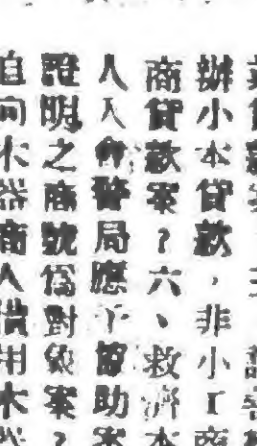 辦小本貸款，非小工商
商貸款案？六、救濟本
人入會警局應予協助案
證明之商號為對象案？
自向木器商人借用木器